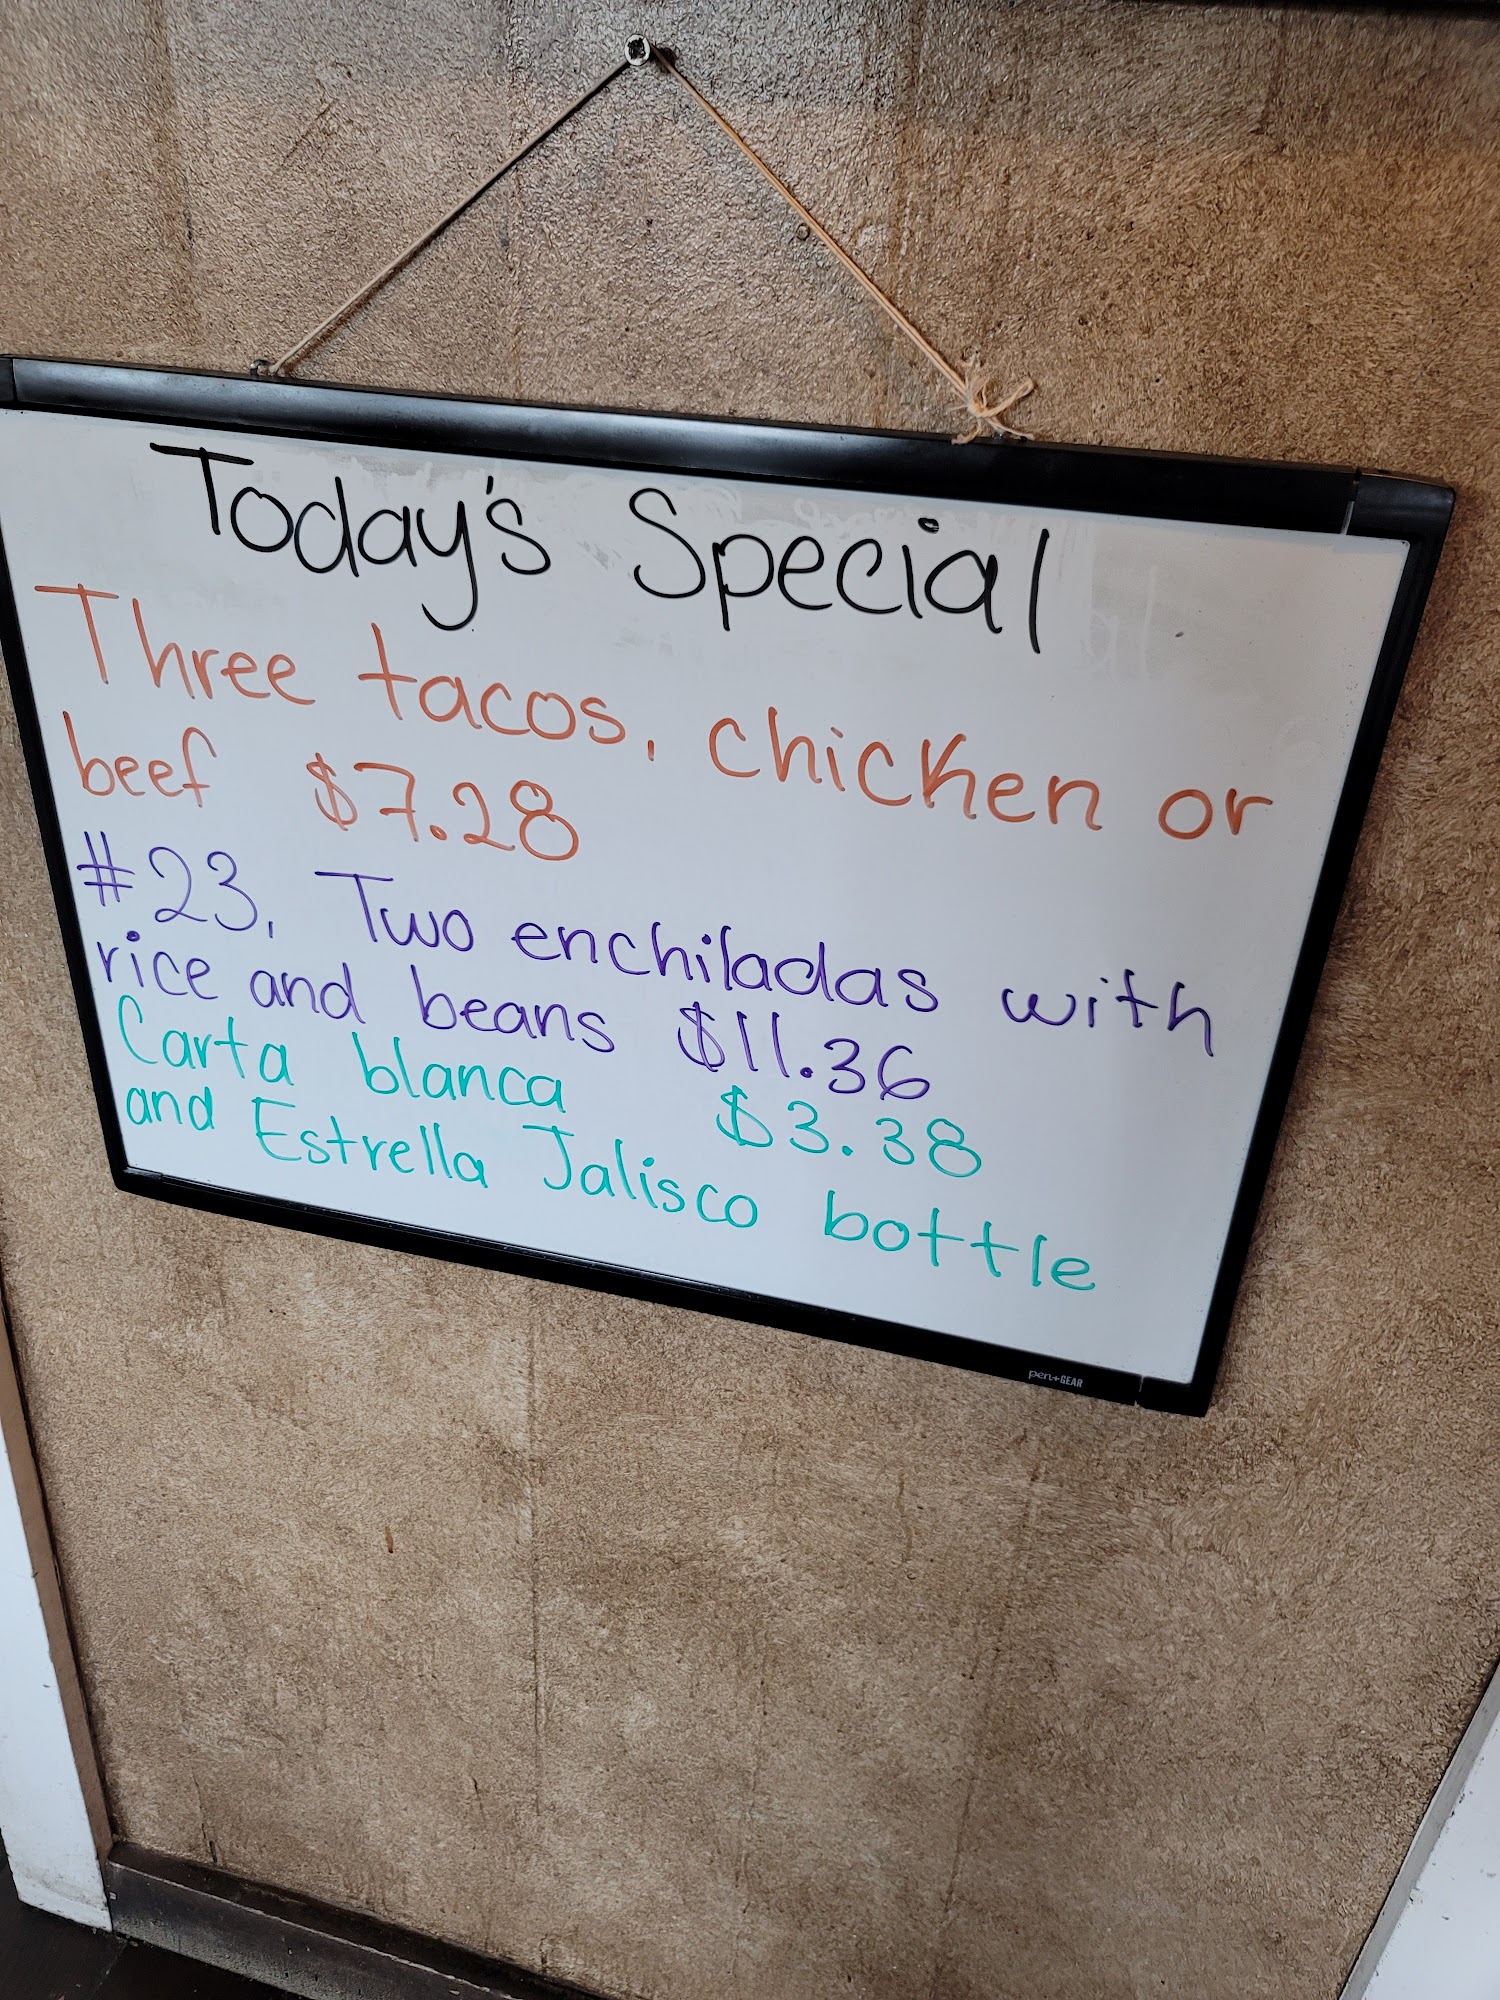 Today's Special
Three tacos, chicken or
beef $7.28
#23, Two enchiladas with
rice and beans $11.36
Carta blanca $3.38
and Estrella Jalisco bottle
pen+GEAR